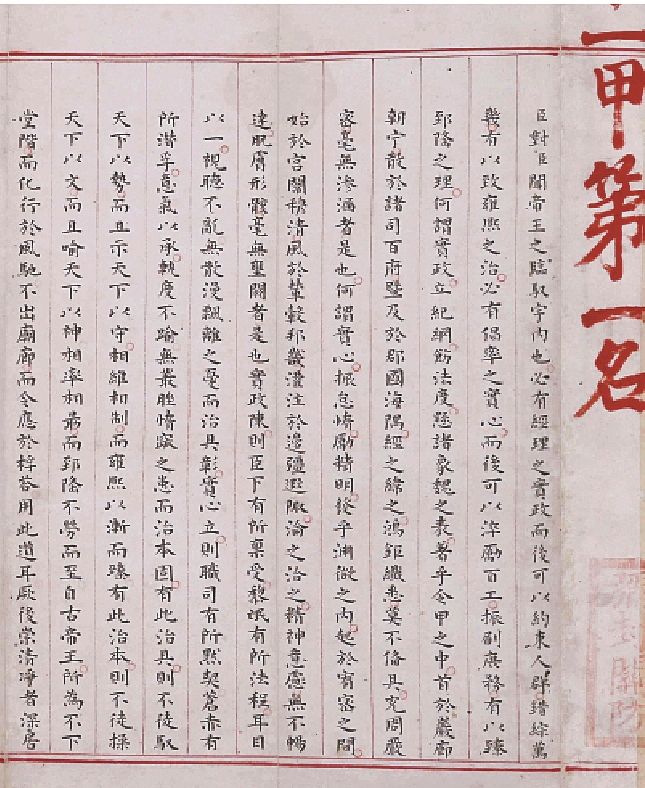 一甲第一名
臣對臣聞帝王之臨馭宇内也必有經理之實政而後可以約束人群錯綜萬
幾有以致雍熙之治必有倡率之實心而後可以淬勵百工振刷庶務有以臻
郅隆之理何謂實政立紀綱飭法度懸諸象魏之表著乎令甲之中首於巖廊
朝宁散於諸司百府暨及於郡國海隅經之緯之鴻鉅纖悉莫不備具充周嚴
密毫無滲漏者是也何謂實心振怠惰勵精明發乎淵微之内起於宥密之間
始於宮闈穆清風於輦轂邦畿灌注於邊疆遐陬淪之洽之精神意慮無不暢
達肌膚形骸毫無壅閼者是也實政陳則臣下有所稟受黎氓有所法程耳目
以一視聽不亂無散漫飄離之憂而治具彰實心立則職司有所默契蒼赤有
所潛孚意氣以承軌度不踰無叢脞惰窳之患而治本固有此治具則不徒馭
天下以勢而且示天下以守相維相制而雍熙以漸而臻有此治本則不徒操
天下以文而且喻天下以神相率相勗而郅隆不勞而至自古帝王所為不下
堂階而化行於風馳不出廟廊而令應於桴答用此道耳厥後崇清凈者深居